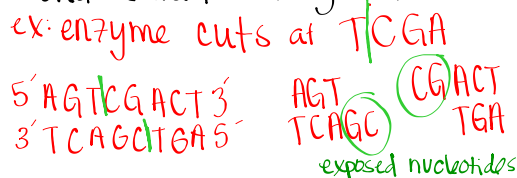 ex: enzyme cuts at TCGA
5' AGTCGACT 3' AGT CGACT
3' TCAGCTGA 5' TCAGC TGA
exposed nucleotides